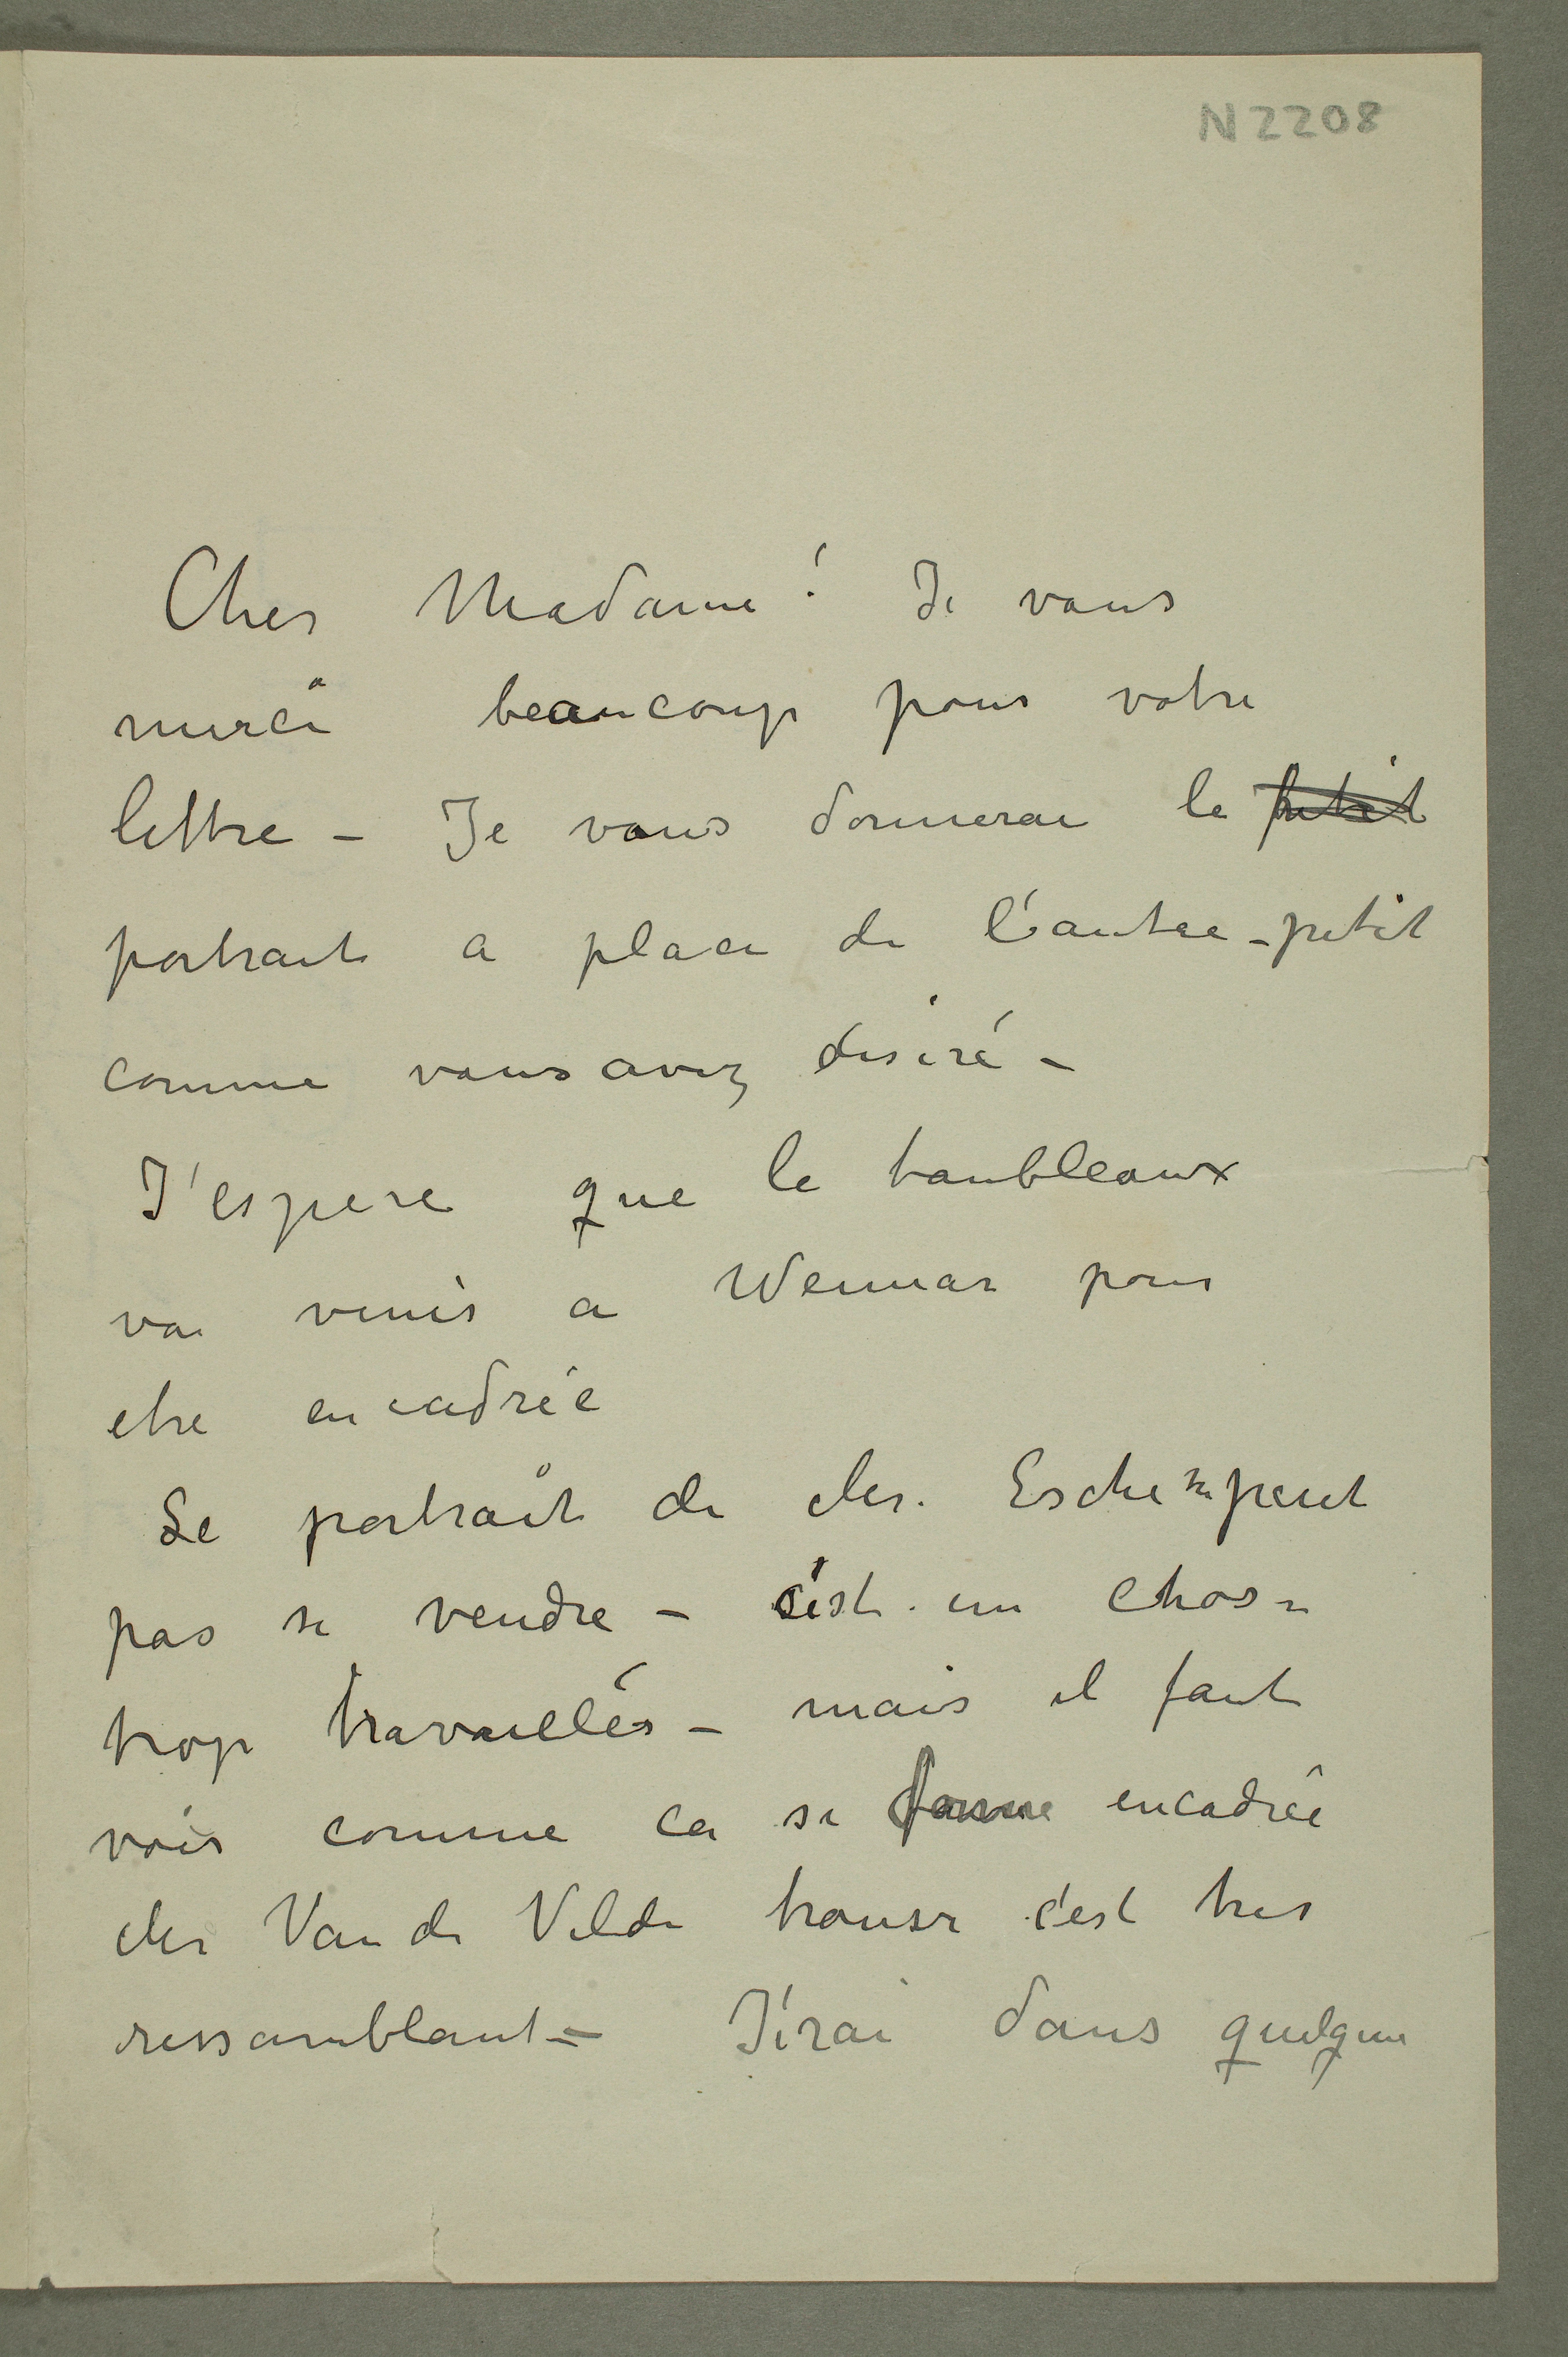 N 2208
Cher Madame! Je vous
merci beaucoup pour votre
lettre – Je vous donnerai le petit
portrait a place de l'autre – petit
comme vous avez desiré –
J'espere que le taubleaux
vai venir a Weimar pour
etre encadrée
Le portrait de Mr. Esche ne peut
pas se vendre – c'est un chose
trop travaillés – mais il faut
voir comme ca se encadrée
Mr Van de Velde trouve c'est tres
ressamblant – J'irai dans quelque